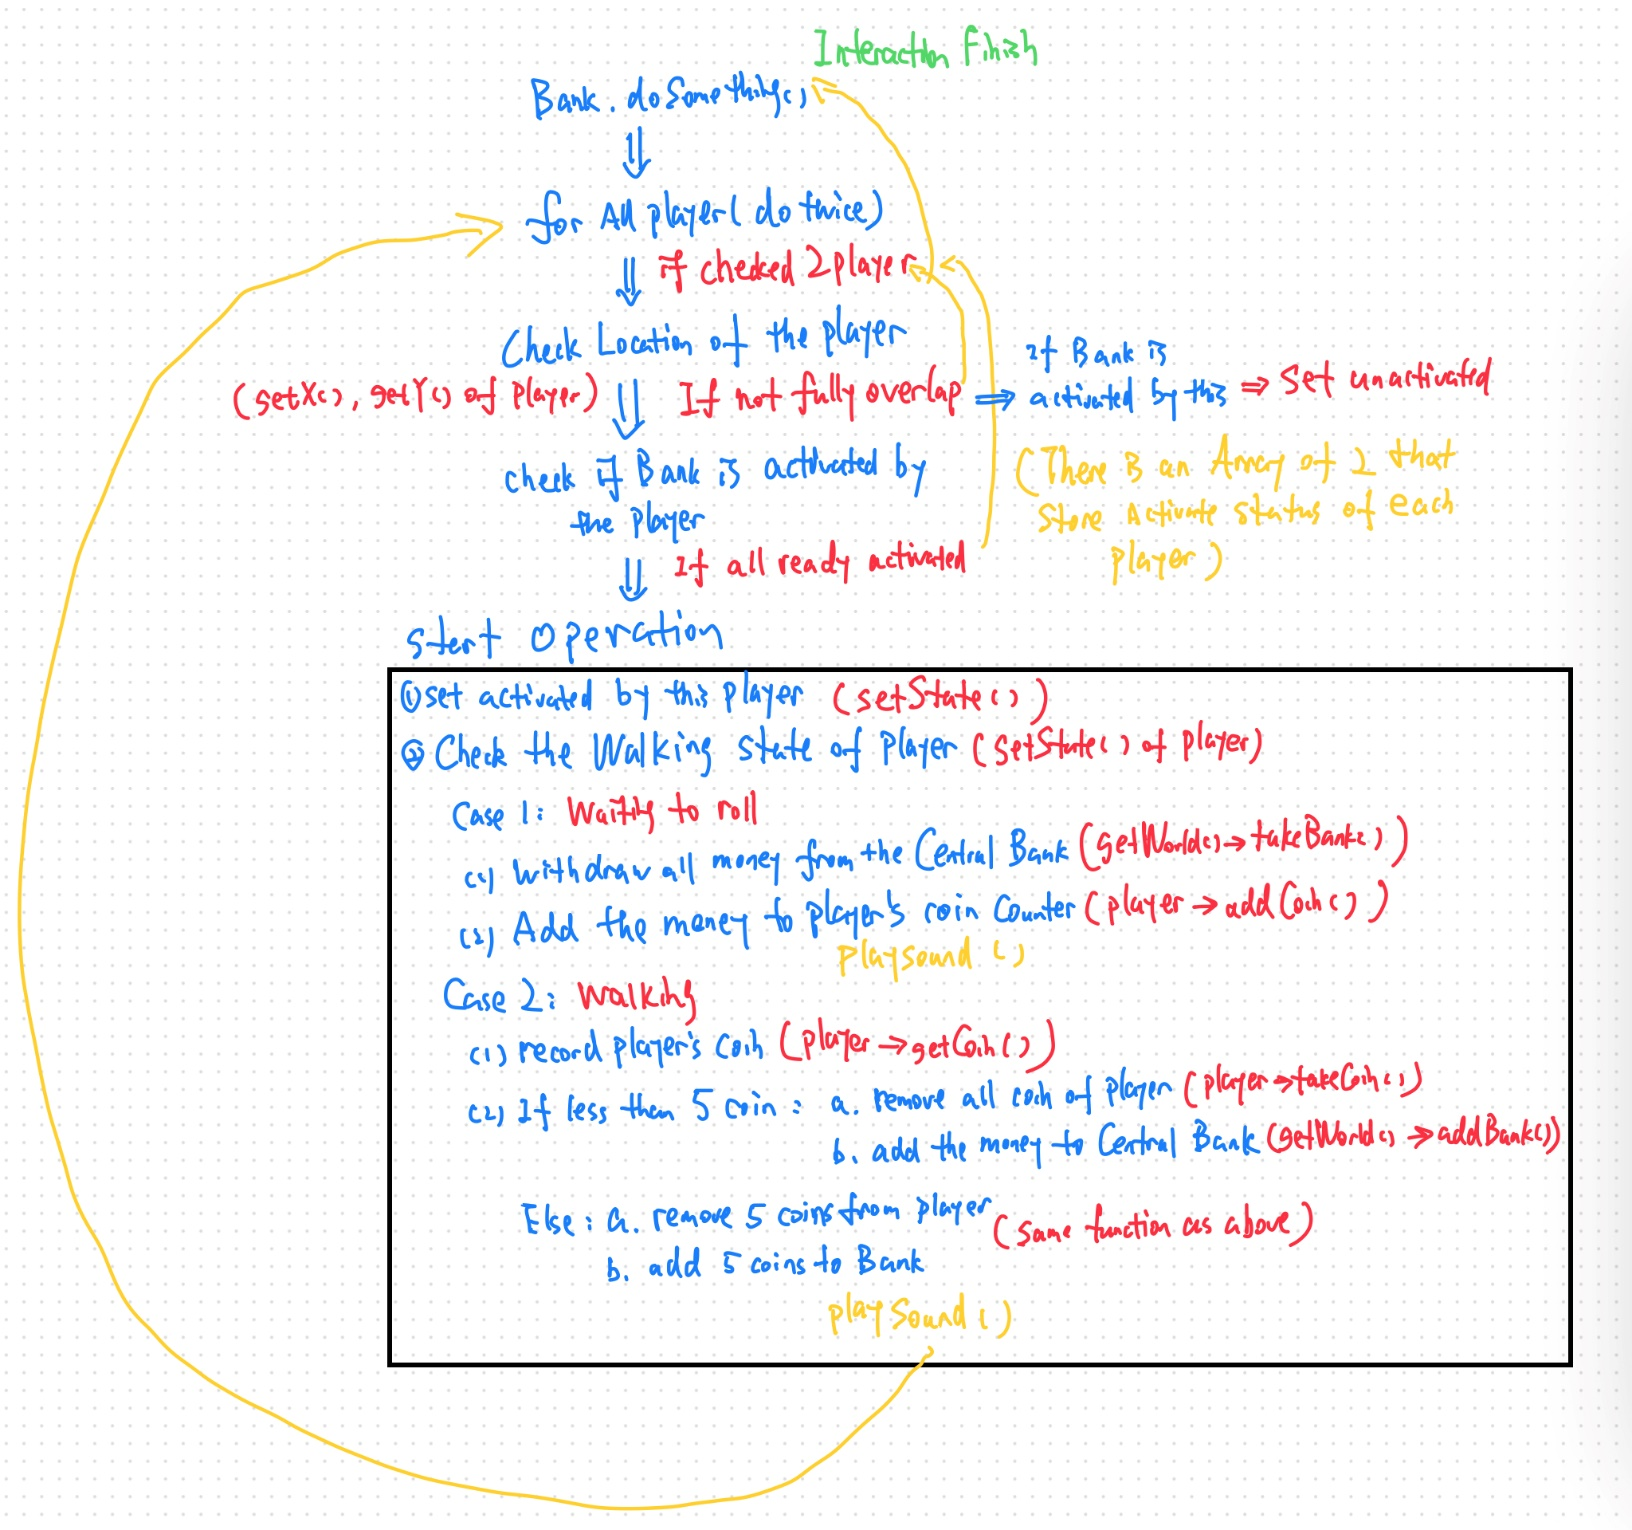 Interaction Finish
Bank.doSomething()
for All player(do twice)
if checked 2 player
Check Location of the player
(setX(), getY() of Player)
If not fully overlap
If Bank is
activated by this ⇒ Set unactivated
check if Bank is activated by
the player
(There is an Array of 2 that
Store Activate status of each
player)
If all ready activated
start operation
① set activated by this player (setState())
② Check the Walking state of Player (SetState() of player)
Case 1: Waiting to roll
(1) withdraw all money from the Central Bank (getWorld()→takeBank())
(2) Add the money to player's coin Counter (player→addCoin())
playsound()
Case 2: Walking
(1) record player's Coin (player→getCoin())
(2) If less than 5 coin: a. remove all coin of player (player→takeCoin())
b. add the money to Central Bank (getWorld()→addBank())
Else: a. remove 5 coins from player (same function as above)
b. add 5 coins to Bank
playSound()